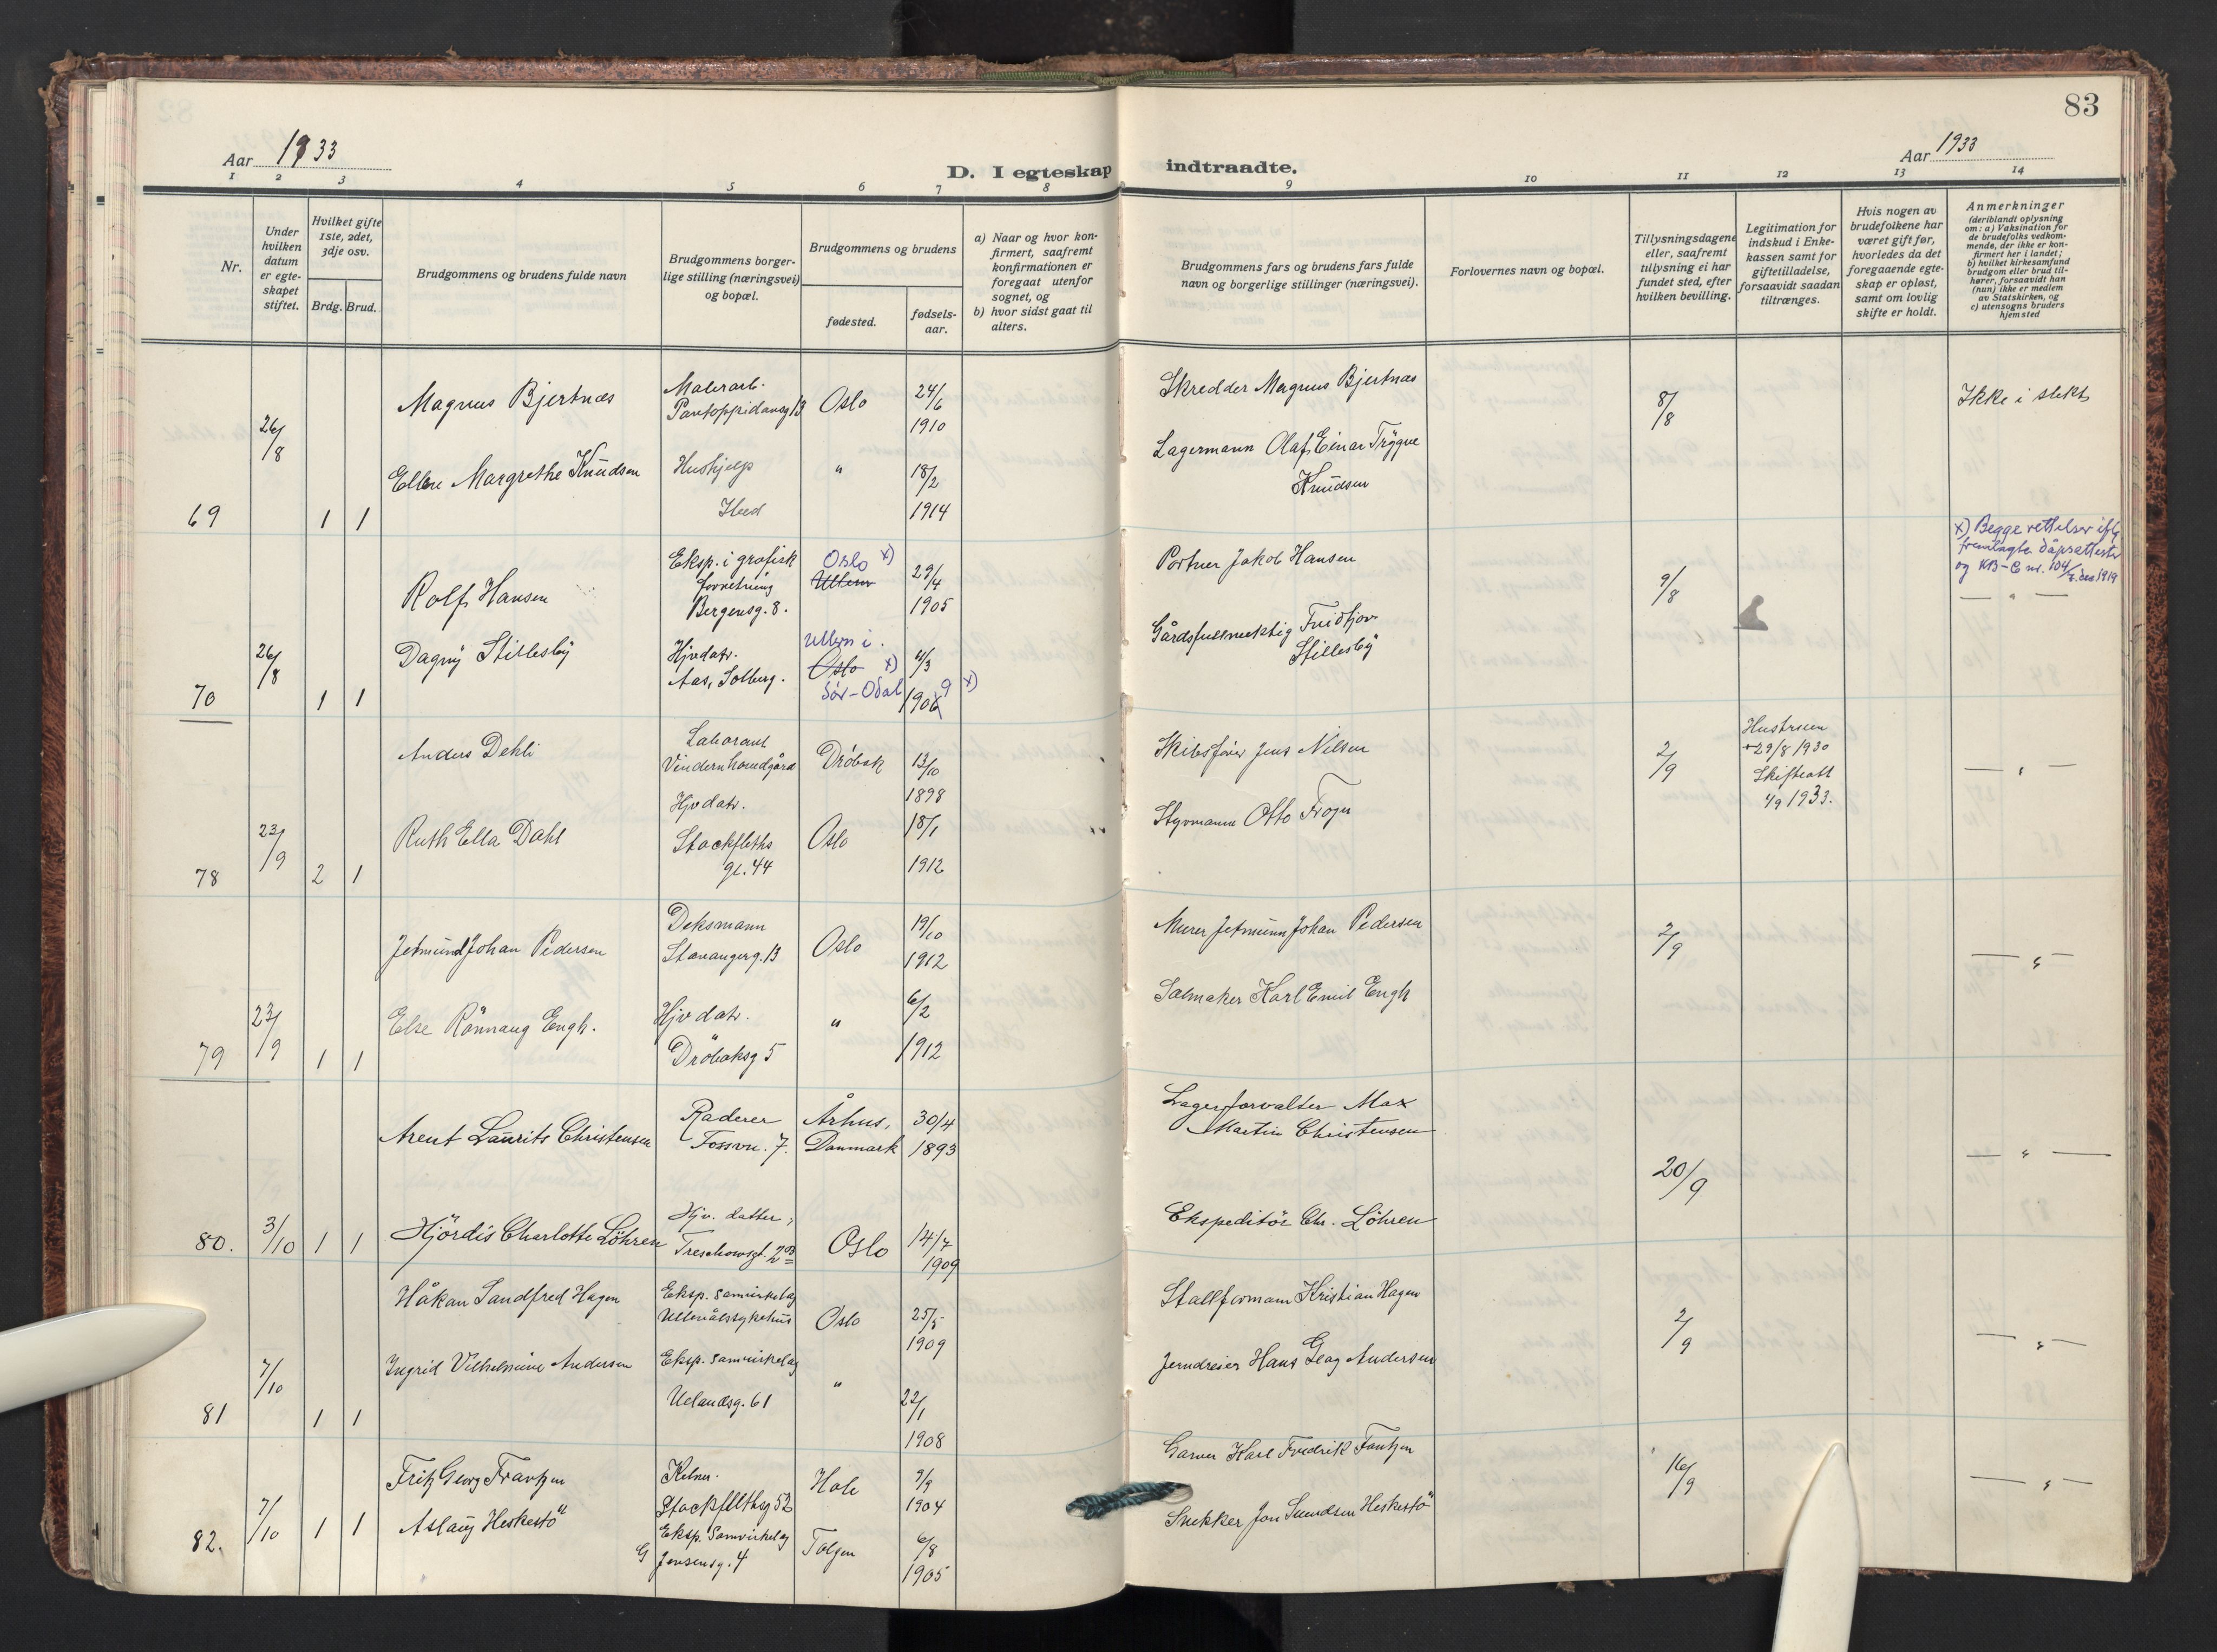 83
Aar 1933
D. I egteskap indtraadte.
Aar 1933
1 2 3 4 5 6 7 8 9 10 11 12 13 14
Nr.
Under
hvilken
datum
er egte-
skapet
stiftet.
Hvilket gifte
1ste, 2det,
3dje osv.
Brdg. Brud.
Brudgommens og brudens fulde navn
Brudgommens borger-
lige stilling (næringsvei)
og bopæl.
Brudgommens og brudens
fødested.
fødsels-
aar.
a) Naar og hvor kon-
firmert, saafremt
konfirmationen er
foregaat utenfor
sognet, og
b) hvor sidst gaat til
alters.
Brudgommens fars og brudens fars fulde
navn og borgerlige stillinger (næringsvei).
Forlovernes navn og bopæl.
Tillysningsdagene
eller, saafremt
tillysning ei har
fundet sted, efter
hvilken bevilling.
Legitimation for
indskud i Enke-
kassen samt for
giftetilladelse,
forsaavidt saadan
tiltrænges.
Hvis nogen av
brudefolkene har
været gift før,
hvorledes da det
foregaaende egte-
skap er opløst,
samt om lovlig
skifte er holdt.
Anmerkninger
(deriblandt oplysning
om: a) Vaksination for
de brudefolks vedkom-
mende, der ikke er kon-
firmert her i landet;
b) hvilket kirkesamfund
brudgom eller brud til-
hører, forsaavidt han
(hun) ikke er medlem
av Statskirken, og
c) utensogns bruders
hjemsted
69
26/8
1 1
Magnus Bjertnæs
Malerarb.
Pantoppidansg 13
Oslo
24/6
1910
Skredder Magnus Bjertnæs
8/8
Ikke i slekt
Ellen Margrethe Knudsen
Hushjelp
"
18/2
1914
Lagermann Olaf Einar Trygve
Knudsen
70
26/8
1 1
Rolf Hansen
Eksp. i grafisk
forretning
Bergensg. 8.
Oslo x)
Ullern
29/4
1905
Portner Jakob Hansen
9/8
x) Begge rettelser iflg
fremlagte dåpsattester
og KB-C nr. 104
— " —
Dagny Stillesby
Hjvdatr.
Aas, Solberg.
Ullern i.
Oslo x)
Sør-Odal
4/3
1906 9 x)
Gårdsfullmektig Fridtjov
Stillesby
78
23/9
2 1
Anders Dehli
Laborant
Vindern hovedgård
Drøbak
13/10
1898
Skibsfører Jens Nilsen
2/9
Hustruen
+ 29/8 1930
Skifteatt
4/9 1933.
— " —
Ruth Ella Dahl
Hjvdatr.
Stockfleths
gt. 44
Oslo
18/1
1912
Styrmann Otto
79
23/9
1 1
Jetmund Johan Pedersen
Deksmann
Stavangerg. 13
Oslo
19/10
1912
Murer Jetmunn Johan Pedersen
2/9
— " —
Else Rönnaug Engh.
Hjvdatr.
Drøbaksg 5
"
6/2
1912
Salmaker Karl Emil Engh
80.
3/10
1 1
Arent Laurits Christensen
Raderer
Fossvn. 7.
Århus,
Danmark
30/4
1893
Lagerforvalter Max
Martin Christensen
20/9
— " —
Hjördis Charlotte Löhren
Hjv. datter,
Treschowsgt. 2B
Oslo
14/7
1909
Ekspeditör Chr. Löhren
81
7/10
1 1
Håkan Sandfred Hagen
Eksp. samvirkelag
Ullevålssykehus
Oslo
25/5
1909
Stallformann Kristian Hagen
2/9
— " —
Ingrid Vilhelmine Andersen
Eksp. samvirkelag
Uelandsg. 61
"
22/1
1908
Jerndreier Hans Andersen
82.
7/10
1 1
Fritz Georg Frantzen
Kelner.
Stockflethsg 52
Hole
9/9
1904
Garver Karl Fredrik
16/9
— " —
Aslaug Heskestö
Eksp. Samvirkelag
G Jensensg. 4
Tolgen
6/8
1905
Snekker Jon Heskestö